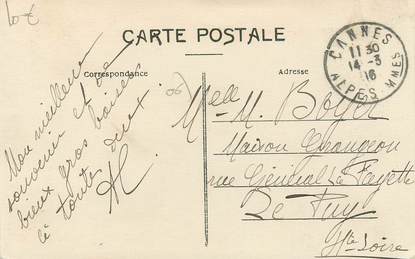 10€
CARTE POSTALE
Correspondance
Adresse
CANNES
11 30
14 - 3
16
ALPES MMES
Mon meilleur
souvenir et de
bieux gros baisers
à toute deux
Melle M. Boyer
Maison Grangeon
rue Général La Fayette
Le Puy
Hte Loire